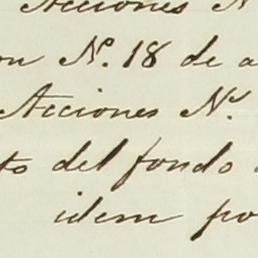 Acciones N
on N.º 18 de a
Acciones N.º
to del fondo
idem po